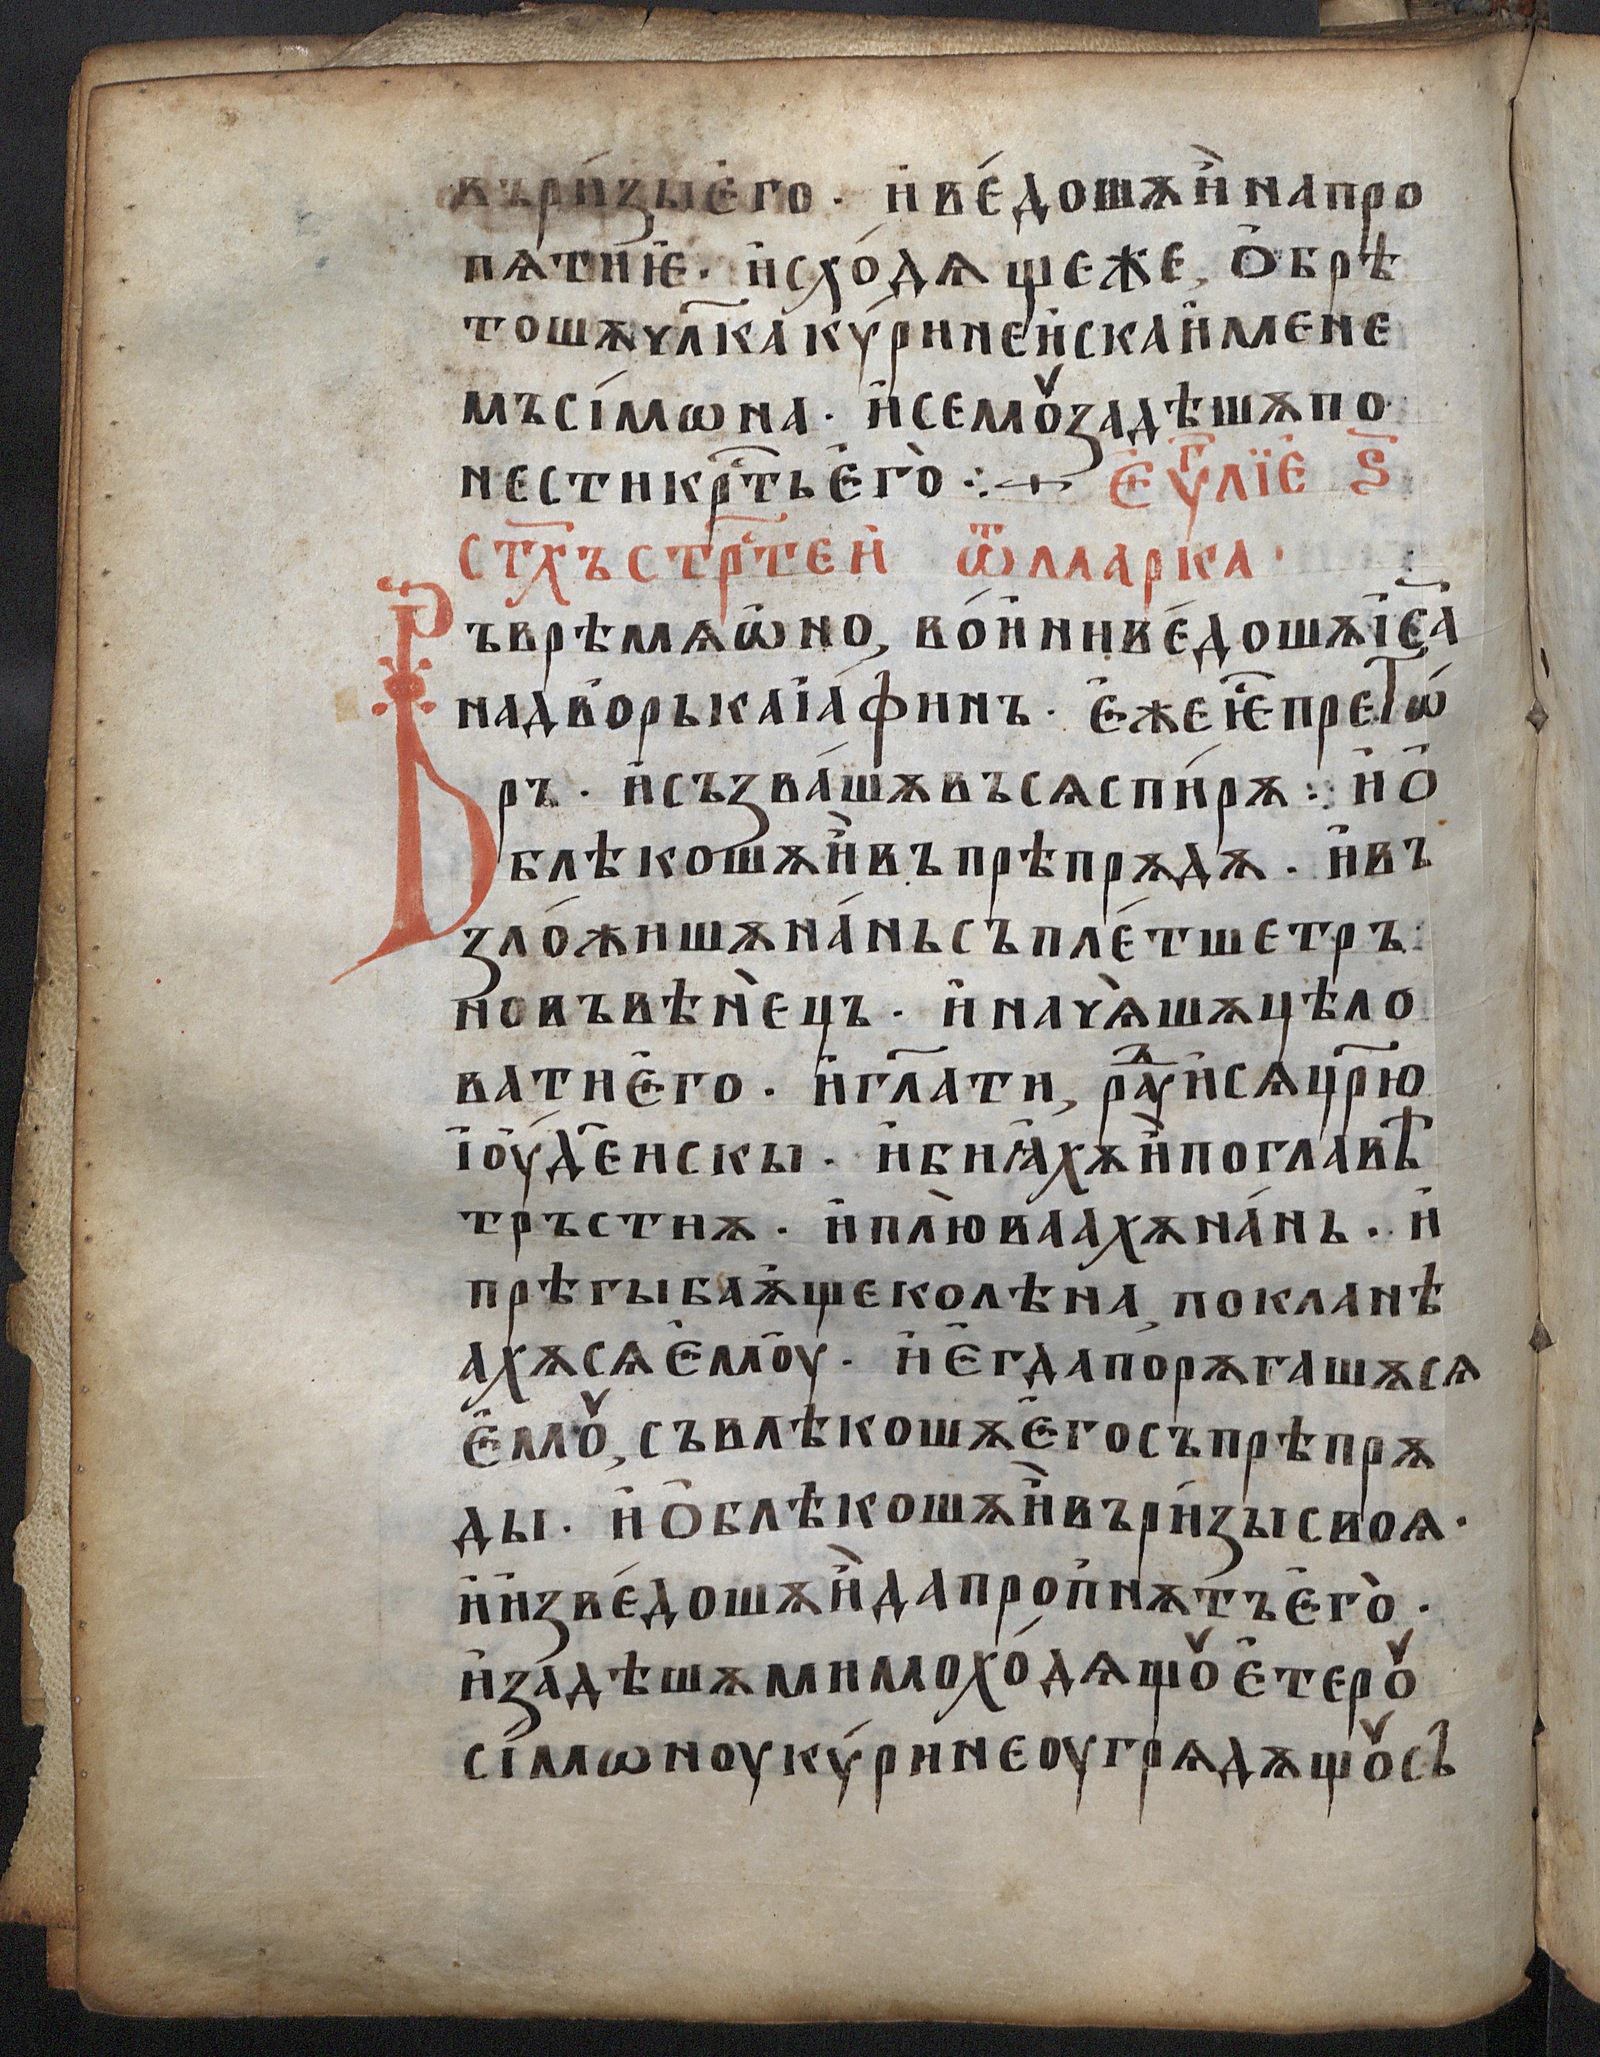 въри́зыє҆го · и҆ве́дошѫи҆̀напро
пѧтиѥ · и҆схо́дѧщеже, ѻ҆брѣ
тошѫчл҃какѵ́ринеи҆скаи҆мене
мъсі́мѡна · и҆семꙋ҆задѣшѫпо
нестикрⷭ҇тъє҆го̀ ⁘ є҆ѵⷢ҇лїе ѕ҃
ст҃хъстрⷭ҇теи҆ ѿмарка ·
Въврѣмѧѡ҆но, во́и҆ниве́дошѫі҆с҃а
надво́рькаїа́финъ · є҆жеѥⷭ҇претѡ́
ръ · и҆съзва́шѫвъсѧспи́рѫ ⁘ и҆ѻ҆
блѣкошѫи҆̀въпрѣпрѫдѫ · и҆въ
зло́жишѫна́ньсъпле́тшетръ
новъвѣнѐцъ · и҆начѧ̀шѫцѣло
ватиє҆го · и҆гл҃ати, раⷣуи҆сѧцр҃ю
і҆оу҆де́искы · и҆биꙗ҆хѫи҆̀поглавѣ
тръстиѫ · и҆плю̀ваахѫна́нь · и҆
прѣгыбаѫ҆щеколѣна, покланѣ
ахѫсѧє҆моу · и҆є҆гдапорѫгашѫсѧ
є҆мꙋ, съвлѣкошѫє҆госъпрѣпрѫ
ды · и҆ѻ҆блѣкошѫи҆̀въри́зысвоѧ ·
и҆и҆зве́дошѫи҆̀дапропнѫтъє҆го̀ ·
и҆задѣшѫмимохо́дѧщꙋє҆терꙋ
сі́мѡноукѵ́ринеоугрѧдѫщꙋсъ